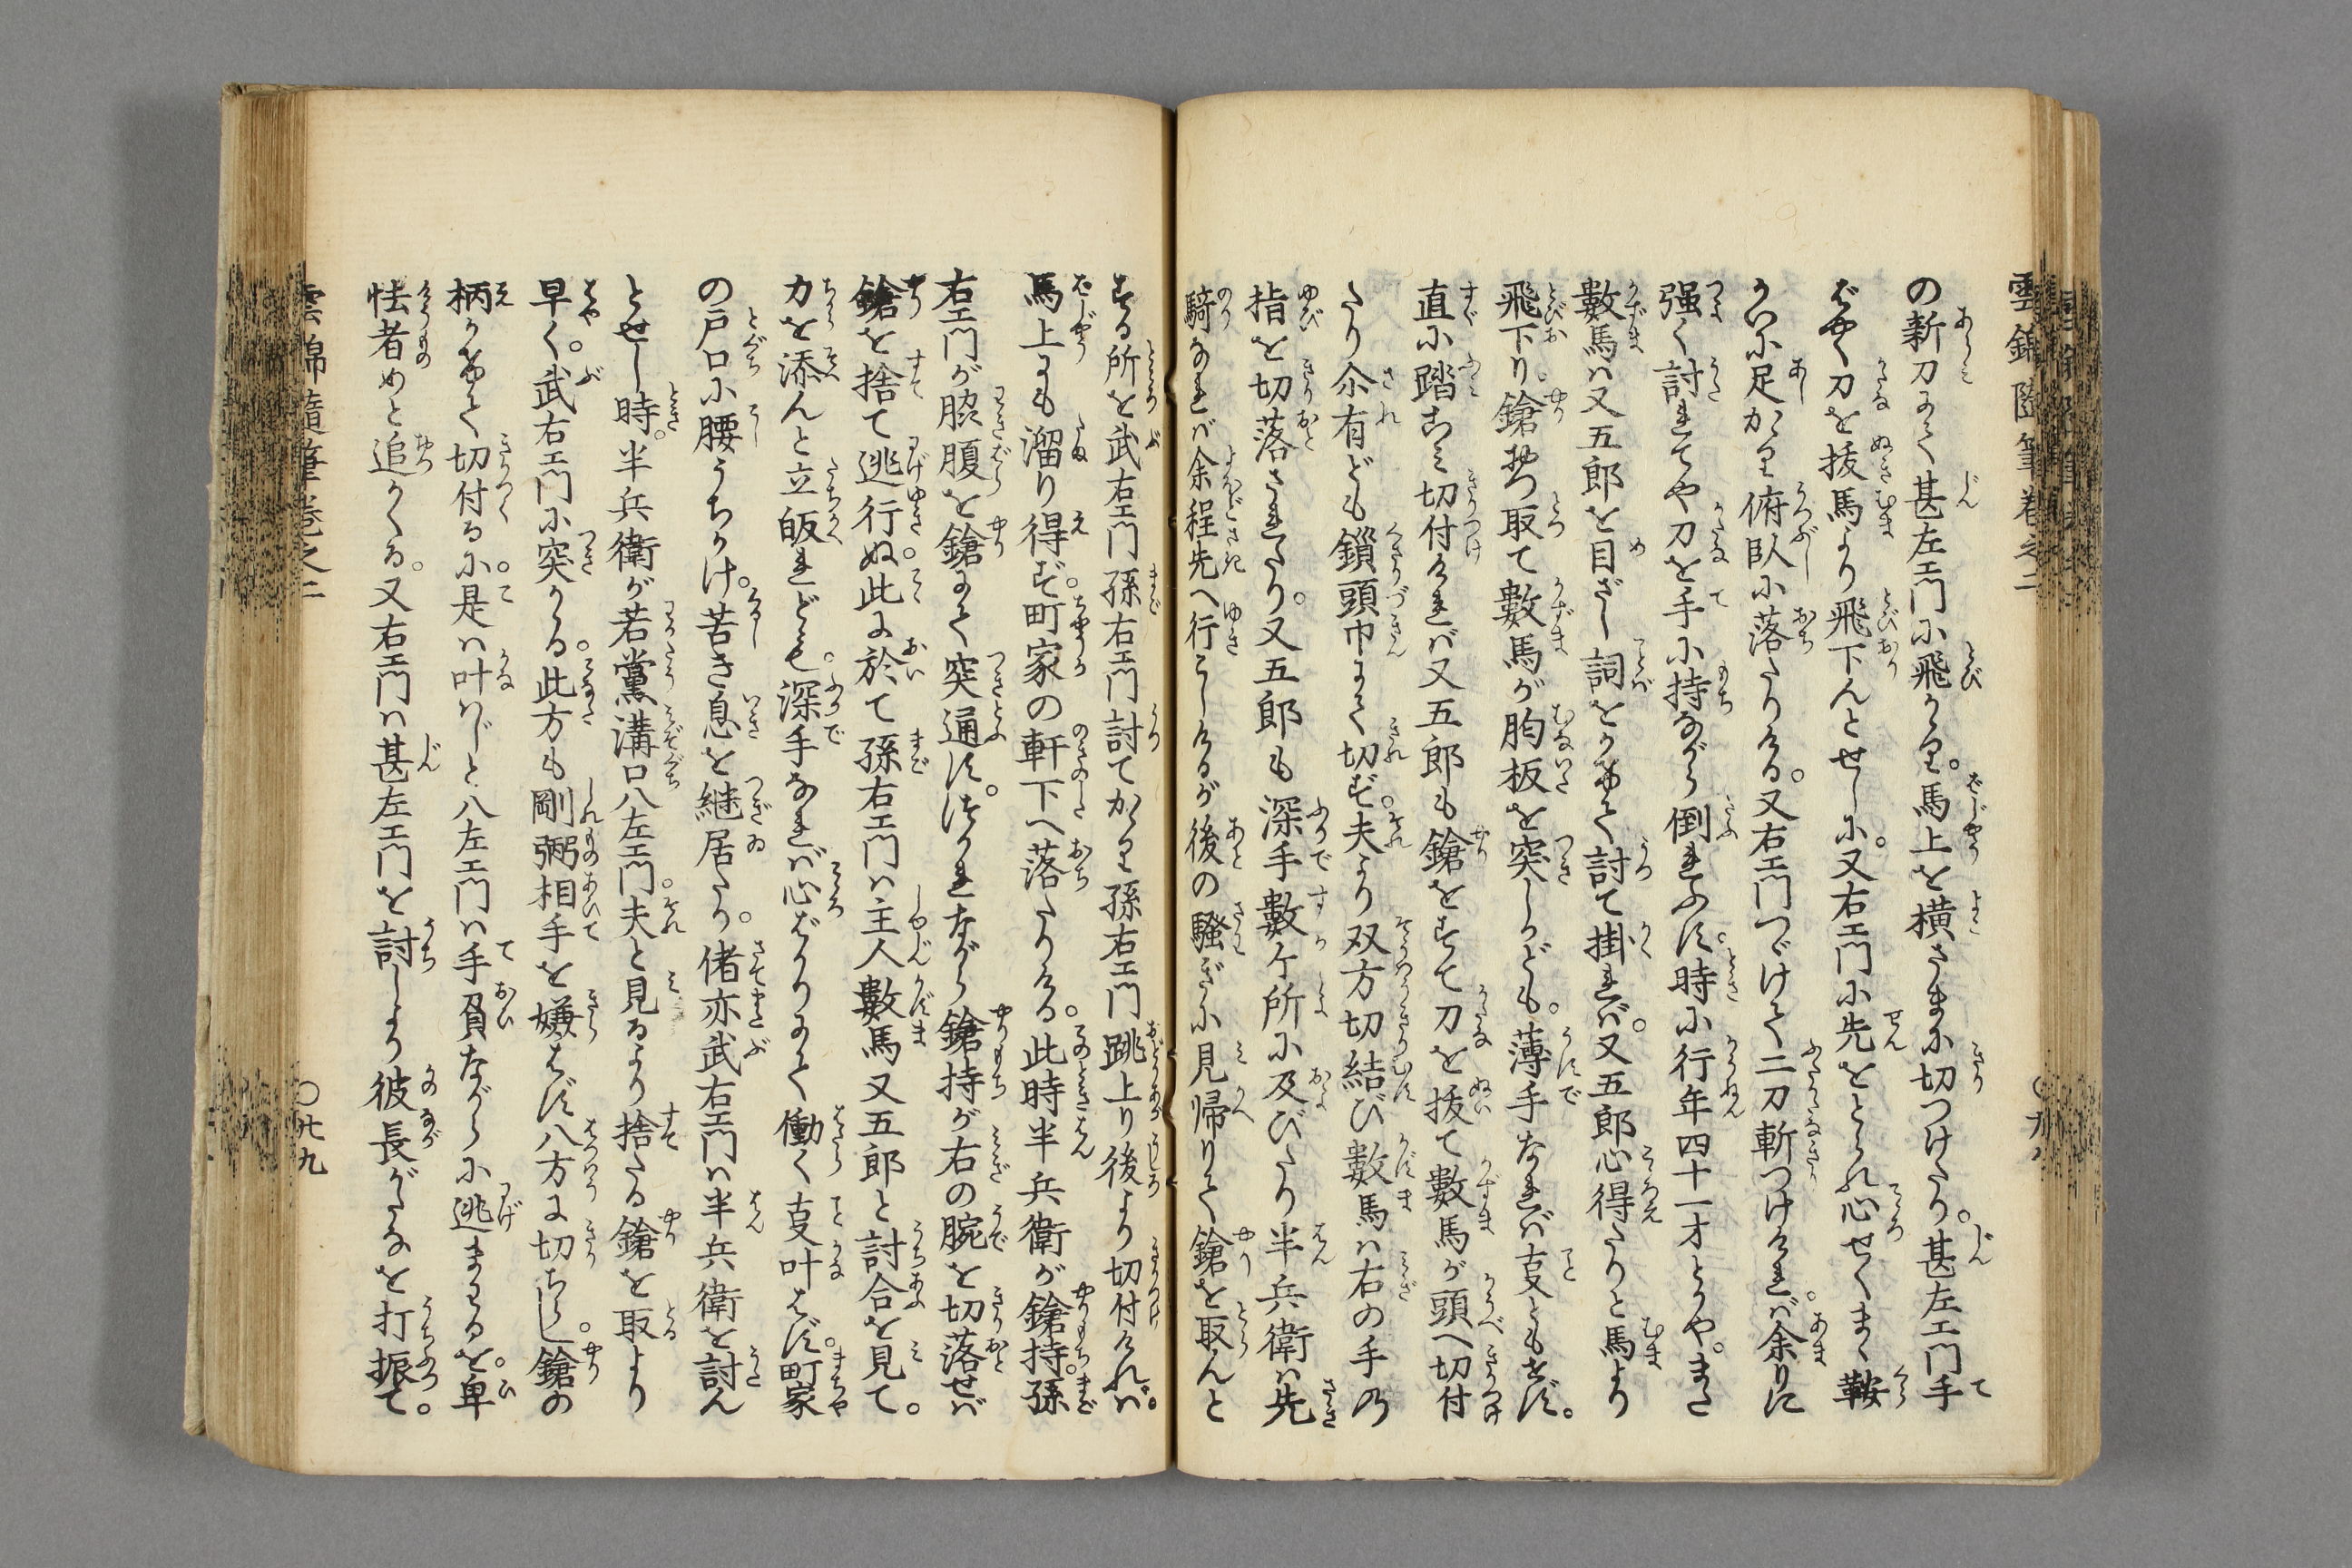 雲錦隨筆卷之二
の新刀にて甚左エ門に飛かゝれ。馬上を横さまに切つけたり。甚左エ門手
ばやく刀を抜馬より飛下んとせしに。又右エ門に先をとられ心せくまゝ鞍
かいに足かゝり俯臥に落たりける。又右エ門つゞけて二刀斬つけゝれば。余りに
强く討れてや刀を手に持ながら倒れふす。時に行年四十一才とかや。また
數馬は又五郎を目ざし詞をかけて討て掛れば。又五郎心得たりと馬より
飛下り。鎗おつ取て數馬が胸板を突しかども。薄手なれば叓ともせず。
直に踏こみ切付ければ又五郎も鎗をすて刀を抜て數馬が頭へ切付
たり尒有ども鎻頭巾にて切ず。夫より双方切結び數馬は右の手の
指を切落されたり。又五郎も深手數ケ所に及びたり半兵衛は先
騎なれば余程先へ行こしけるが後の騒ぎに見帰りて鎗を取んと
する所を武右エ門孫右エ門討てかゝり孫右エ門跳上り後より切付ければ。
馬上にも溜り得ず。町家の軒下へ落たりける。此時半兵衛が鎗持。孫
右エ門が脇腹を鎗にて突通す。つかれながら鎗持が右の腕を切落せば
鎗を捨て逃行ぬ。此に於て孫右エ門は主人數馬又五郎と討合を見て。
力を添んと立皈れども。深手なれば心ばかりにて働く叓叶はず。町家
の戸口に腰うちかけ。苦き息を継居たり。偖亦武右エ門は半兵衛を討ん
とせし時。半兵衛が若黨溝口八左エ門。夫と見るより捨たる鎗を取より
早く。武右エ門に突かゝる。此方も剛弼相手を嫌はず八方に切ちらし。鎗の
柄かけて切付るに。是は叶はじと八左エ門は手負ながらに逃まはるを。卑
怯者めと追かくる。又右エ門は甚左エ門を討しより彼長がたなを打振て。
雲錦隨筆卷之二
〇廿九